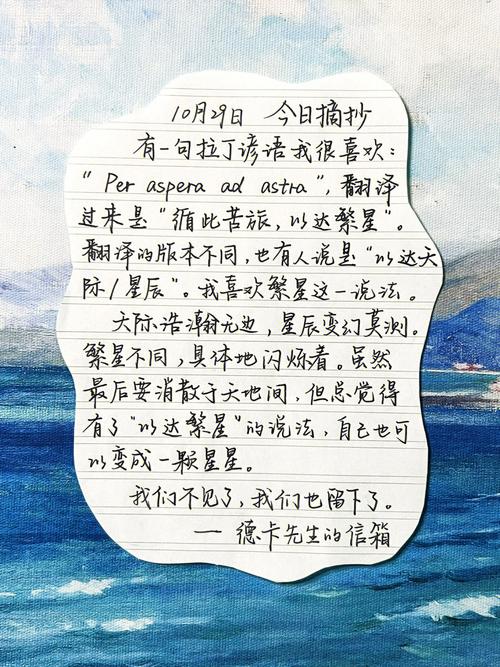 10月29日 今日摘抄
有一句拉丁谚语我很喜欢：
“Per aspera ad astra”，翻译
过来是“循此苦旅，以达繁星”。
翻译的版本不同，也有人说是“以达天
际/星辰”。我喜欢繁星这一说法。
天际浩瀚无边，星辰变幻莫测。
繁星不同，具体地闪烁着。虽然
最后要消散于天地间，但总觉得
有了“以达繁星”的说法，自己也可
以变成一颗星星。
我们不见了，我们也留下了。
—— 德卡先生的信箱